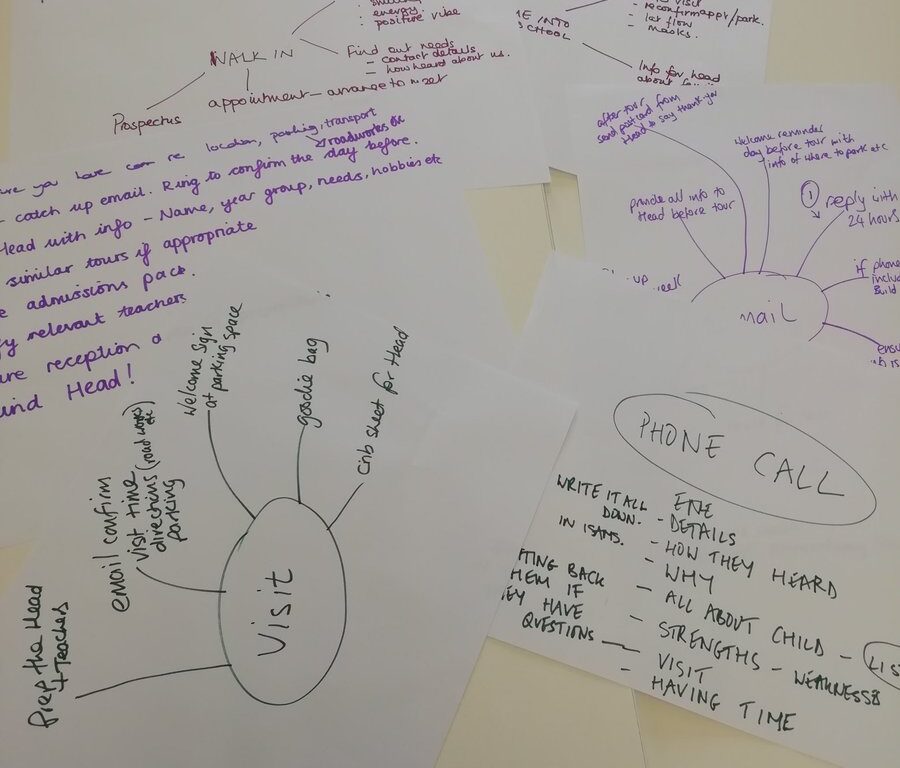 energy.
positive vibe
WALK IN
Find out needs
- contact details
- how heard about us.
appointment - arrange to meet
Prospectus
INTO
SCHOOL
- reconfirm appt/park.
- masks.
Info for head
you love com re location, parking, transport
roadworks etc
catch up email. Ring to confirm the day before.
Head with info - Name, year group, needs, hobbies etc
similar tours if appropriate
admissions pack.
relevant teachers
reception a
Head!
after tour,
send postcard from
Head to say thank you
Welcome reminder
day before tour with
info of where to park etc
provide all info to
Head before tour
① reply with
24 hours
if phone
up
mail
Visit
Prep the Head
+ Teachers
email confirm
visit time
directions (road works etc)
parking
Welcome sign
at parking space
goodie bag
Crib sheet for Head
PHONE CALL
WRITE IT ALL
DOWN.
IN ISAMS.
- DETAILS
- HOW THEY HEARD
- WHY
- ALL ABOUT CHILD -
- STRENGTHS - WEAKNESSES
- VISIT
- HAVING TIME
BACK
IF
HAVE
QUESTIONS